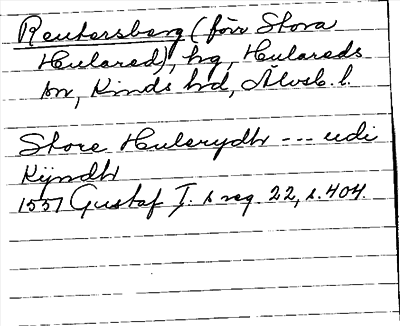 Reutersberg (förr Stora
Hulared), hg, Hulareds
sn, Kinds hd, Älvsb. l.
Store Hulerydh --- udi
Kijndh
1557 Gustaf I. s reg. 22, s. 404.